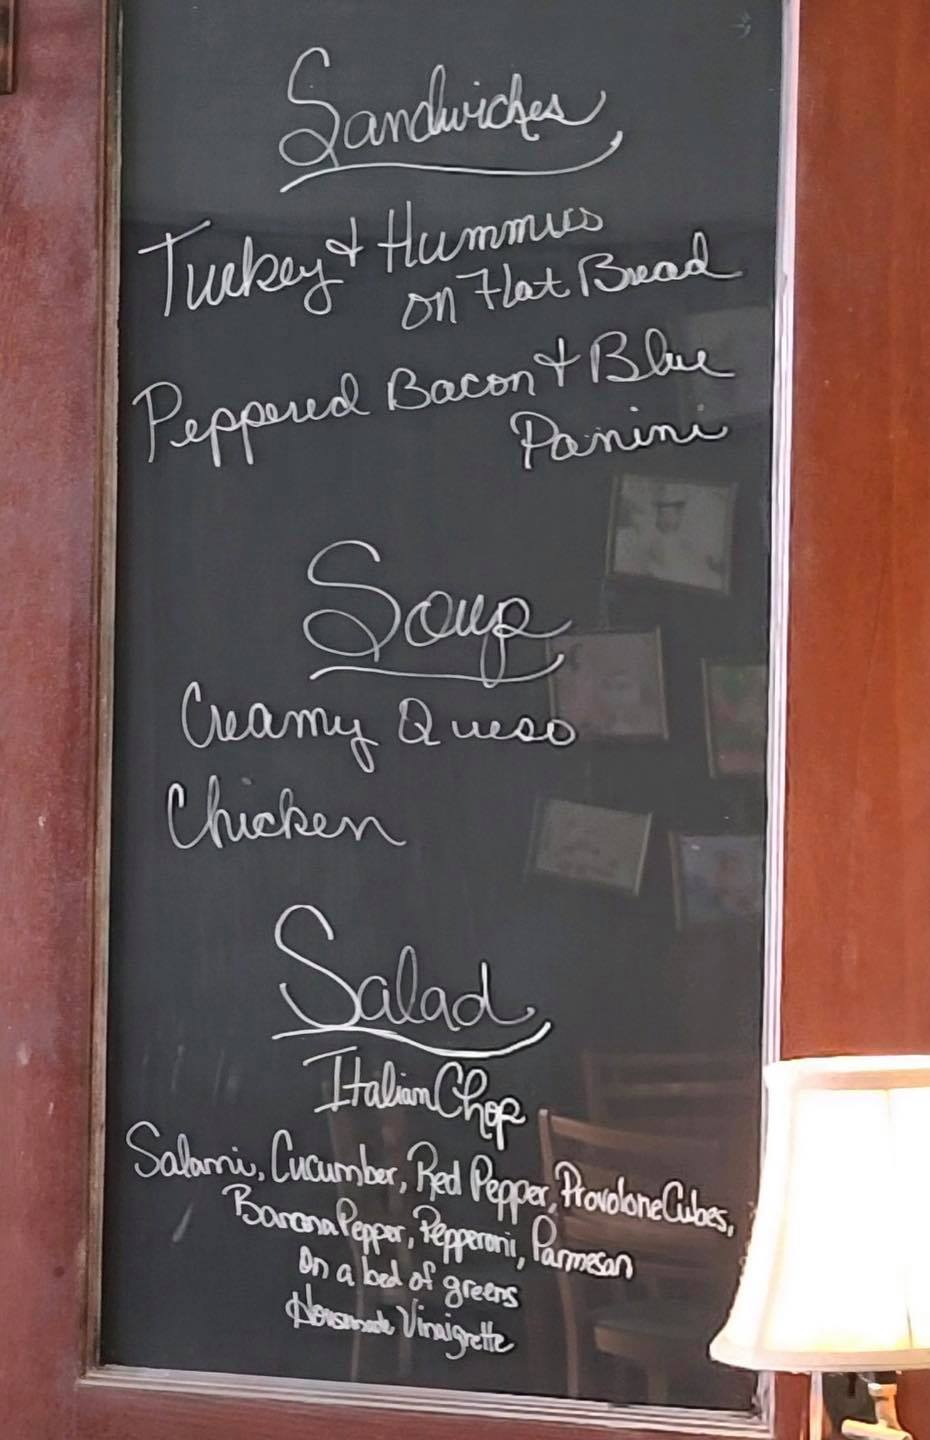 Sandwiches
Turkey + Hummus
on Flat Bread
Peppered Bacon + Blue
Panini
Soup
Creamy Queso
Chicken
Salad
Italian Chop
Salami, Cucumber, Red Pepper, Provolone Cubes,
Banana Pepper, Pepperoni, Parmesan
On a bed of greens
Homemade Vinaigrette